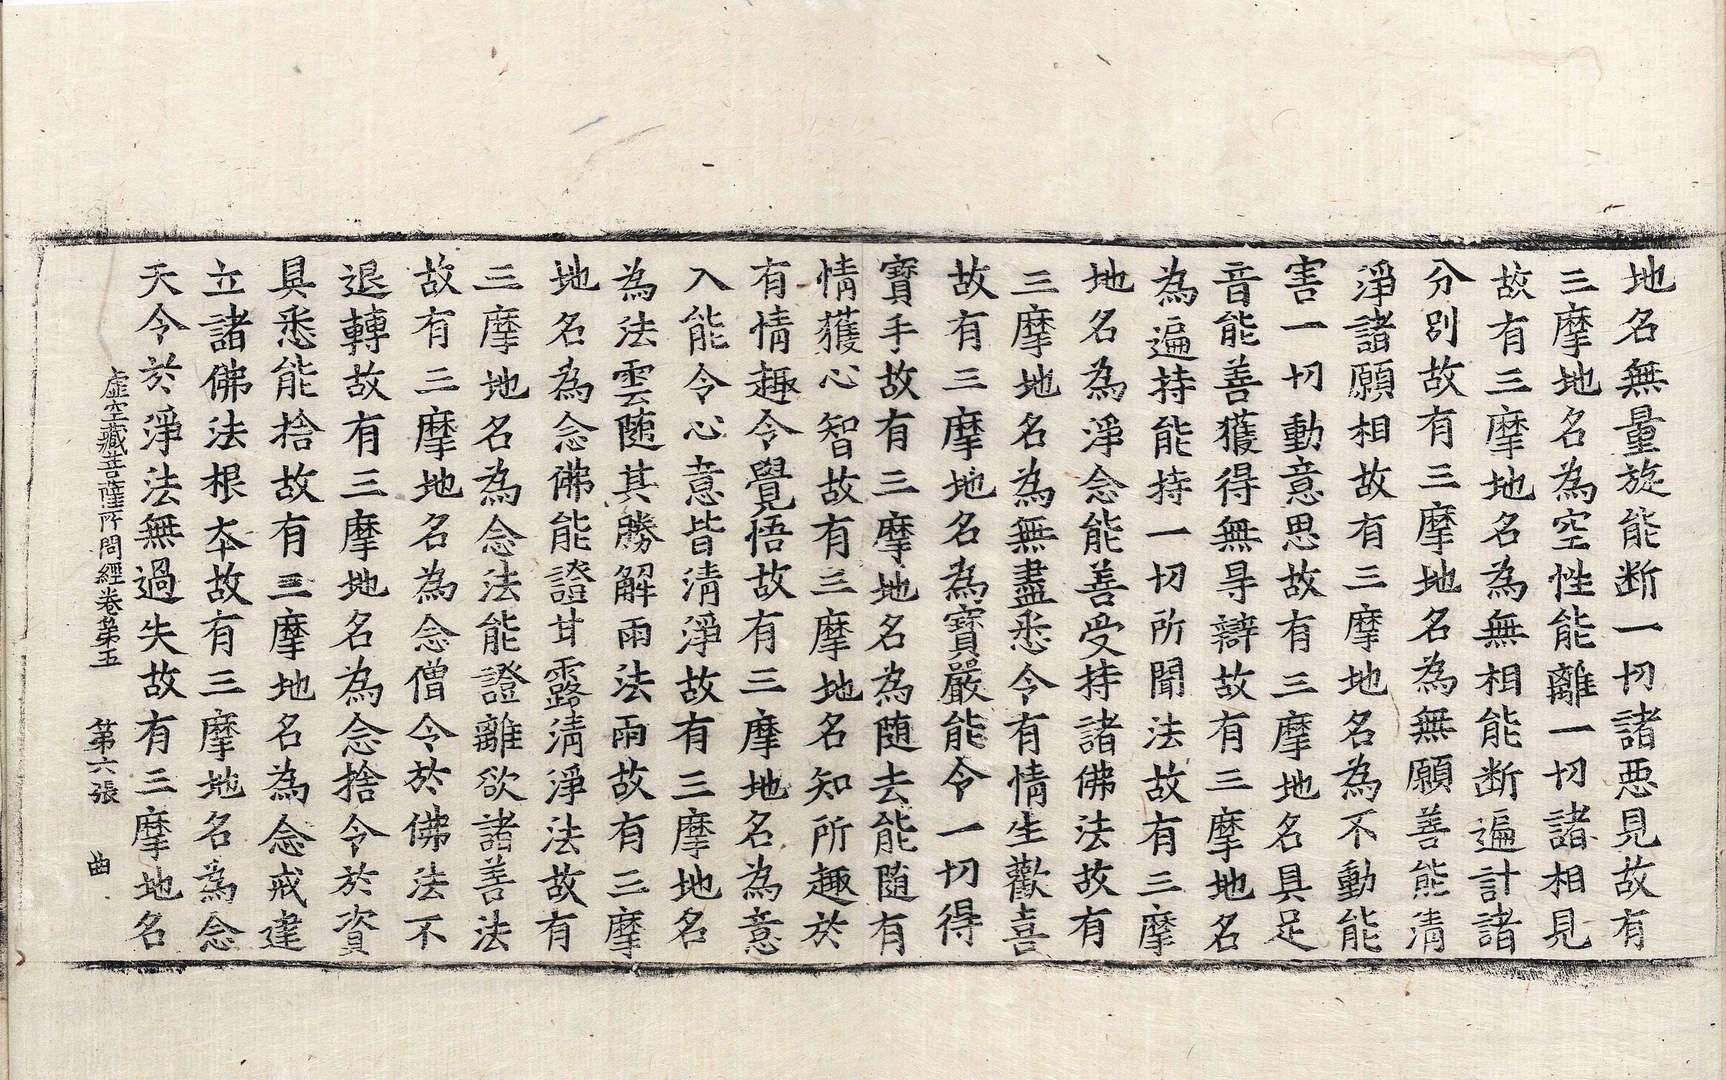 地名無量旋能断一切諸惡見故有
三摩地名為空性能離一切諸相見
故有三摩地名為無相能断遍計諸
分别故有三摩地名為無願善能清
淨諸願相故有三摩地名為不動能
害一切動意思故有三摩地名具足
音能善獲得無㝵辯故有三摩地名
為遍持能持一切所聞法故有三摩
地名為淨念能善受持諸佛法故有
三摩地名為無盡悉令有情生歡喜
故有三摩地名為寶嚴能令一切得
寶手故有三摩地名為随去能随有
情獲心智故有三摩地名知所趣於
有情趣令覺悟故有三摩地名為意
入能令心意皆清淨故有三摩地名
為法雲随其勝解雨法雨故有三摩
地名為念佛能證甘露清淨法故有
三摩地名為念法能證離欲諸善法
故有三摩地名為念僧令於佛法不
退轉故有三摩地名為念捨令於資
具悉能捨故有三摩地名為念戒建
立諸佛法根夲故有三摩地名為念
天令於淨法無過失故有三摩地名
虛空藏菩薩所問經卷第五　第六張　曲